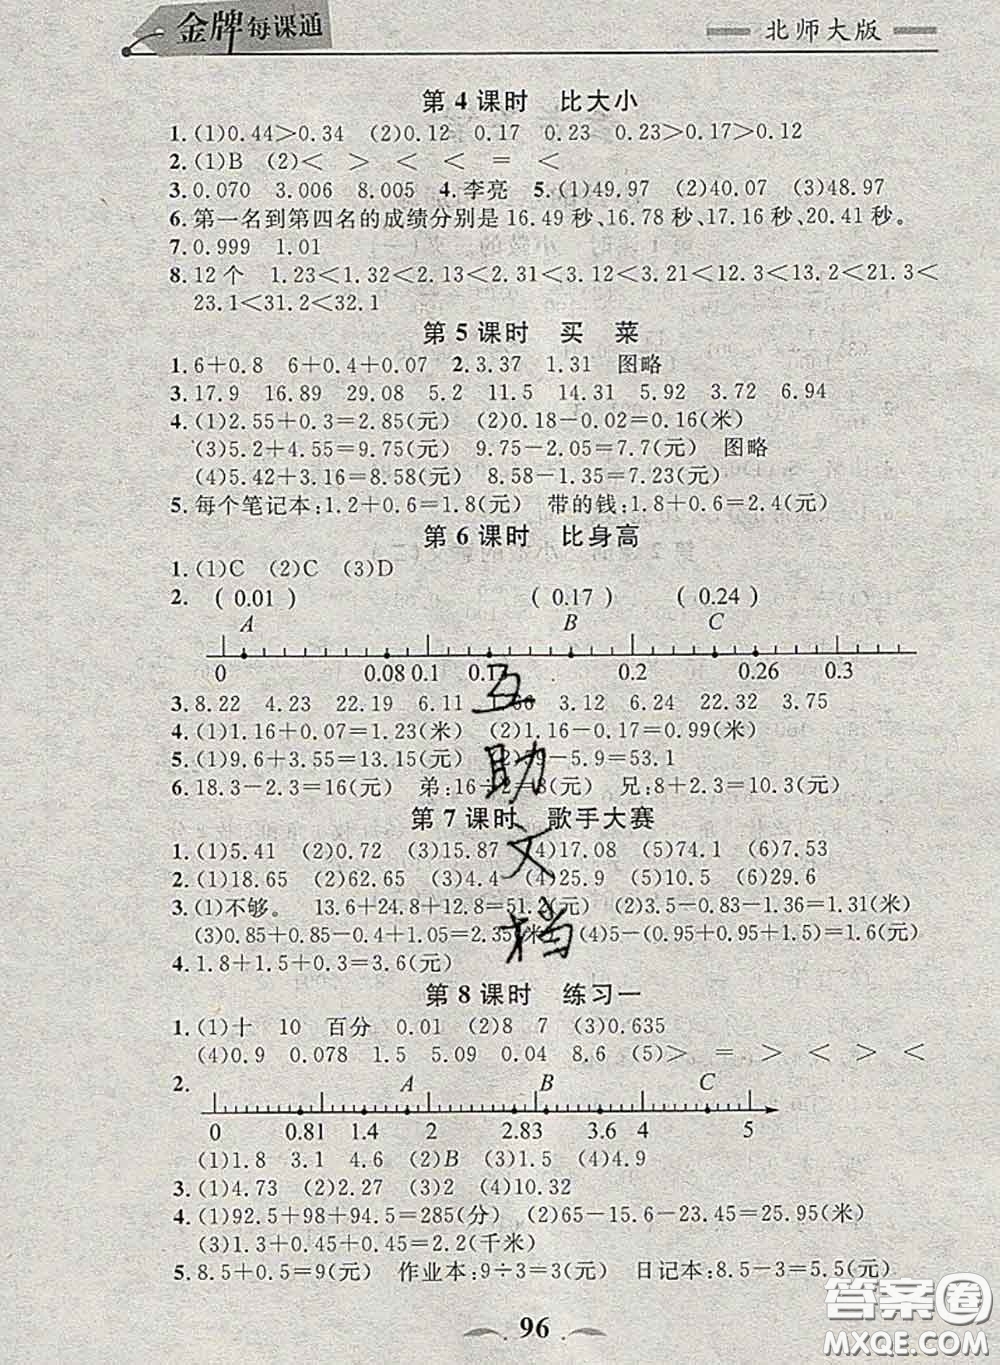 金牌每课通
北师大版
第4课时 比大小
1.(1)0.44>0.34 (2)0.12 0.17 0.23 0.23>0.17>0.12
2.(1)B (2)< > < < = <
3.0.070 3.006 8.005 4.李亮 5.(1)49.97 (2)40.07 (3)48.97
6.第一名到第四名的成绩分别是16.49秒、16.78秒、17.16秒、20.41秒。
7.0.999 1.01
8.12个 1.23<1.32<2.13<2.31<3.12<3.21<12.3<13.2<21.3<
23.1<31.2<32.1
第5课时 买 菜
1.6+0.8 6+0.4+0.07 2.3.37 1.31 图略
3.17.9 16.89 29.08 5.2 11.5 14.31 5.92 3.72 6.94
4.(1)2.55+0.3=2.85(元) (2)0.18-0.02=0.16(米)
(3)5.2+4.55=9.75(元) 9.75-2.05=7.7(元) 图略
(4)5.42+3.16=8.58(元) 8.58-1.35=7.23(元)
5.每个笔记本:1.2+0.6=1.8(元) 带的钱:1.8+0.6=2.4(元)
第6课时 比身高
1.(1)C (2)C (3)D
2. (0.01) (0.17) (0.24)
A B C
0 0.08 0.1 0.13 0.2 0.26 0.3
3.8.22 4.23 22.19 6.11 3.12 6.24 22.32 3.75
4.(1)1.16+0.07=1.23(米) (2)1.16-0.17=0.99(米)
5.(1)9.6+3.55=13.15(元) (2)59-5.9=53.1
6.18.3-2.3=16(元) 弟:16÷2=8(元) 兄:8+2.3=10.3(元)
第7课时 歌手大赛
1.(1)5.41 (2)0.72 (3)15.87 (4)17.08 (5)74.1 (6)7.53
2.(1)18.65 (2)62 (3)4.4 (4)25.9 (5)10.5 (6)29.6
3.(1)不够。 13.6+24.8+12.8=51.2(元) (2)3.5-0.83-1.36=1.31(米)
(3)0.85+0.85-0.4+1.05=2.35(米) (4)5-(0.95+0.95+1.5)=1.6(元)
4.1.8+1.5+0.3=3.6(元)
第8课时 练习一
1.(1)十 10 百分 0.01 (2)8 7 (3)0.635
(4)0.9 0.078 1.5 5.09 0.04 8.6 (5)> = > < > <
2. A B C
0 0.81 1.4 2 2.83 3.6 4 5
(1)1.8 3.1 4.6 (2)B (3)1.5 (4)4.9
3.(1)4.73 (2)2.27 (3)2 (4)10.32
4.(1)92.5+98+94.5=285(分) (2)65-15.6-23.45=25.95(米)
(3)1.3+0.45+0.45=2.2(千米)
5.8.5+0.5=9(元) 作业本:9÷3=3(元) 日记本:8.5-3=5.5(元)
96
互助文档
答案圈
MXQE.COM